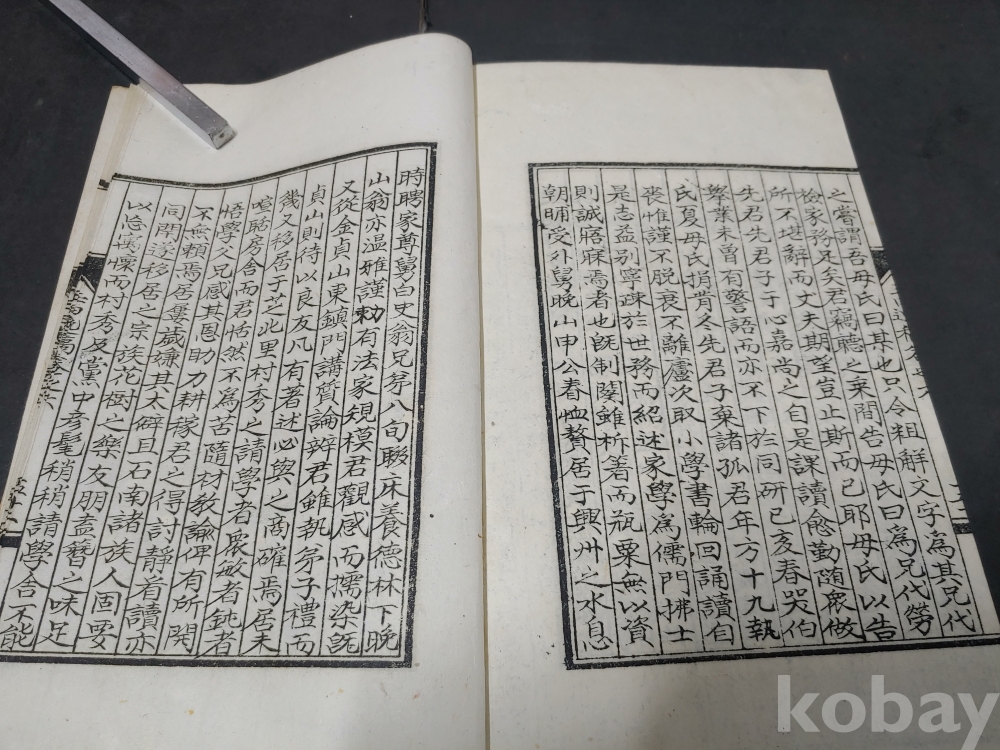 之嘗謂吾母氏曰某也只令粗解文字爲其兄代
檢家務足矣君竊聽之乘間告母氏曰爲兄代勞
所不堪辭而丈夫期望豈止斯而已耶母氏以告
先君先君子于心嘉尚之自是課讀愈勤隨衆做
擧業未曾有警語而亦不下於同研己亥春哭伯
氏夏母氏捐背冬先君子棄諸孤君年方十九執
喪惟謹不脫衰不離廬久取小學書輪回誦讀自
是志益别寧疎於世務而紹述家學爲儒門拂士
則誠寤寐焉者也旣制闋雖析箸而甁粟無以資
朝晡受外舅晩山申公春恤贅居于興州之水息
時聘家尊舅白史翁兄弟八旬聯床養德林下晩
山翁亦温雅謹勅有法家䂓模君觀感而擩染旣
又從金貞山東鎭門講質論辨君雖執弟子禮而
貞山則待以良友凡有著述必與之商確焉居未
幾又移居于芝此里村秀之請學者衆敏者鈍者
喧聒居舍而君恬然不爲苦隨材敎諭俾有所開
悟學父兄感其恩助力耕稼君之得討靜看讀亦
不無賴焉居屢歲嫌其太僻且石南諸族人固要
同閈遂移居之宗族花樹之樂友朋盍簪之味足
以忘壎燥而村秀及黨中彦髦稍稍請學舍不能
kobay